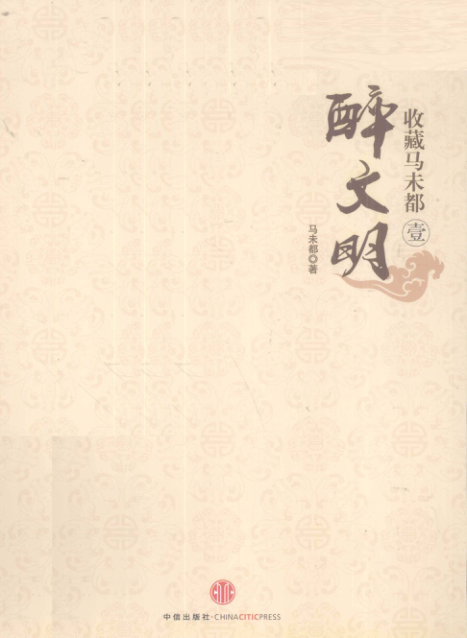 收藏马未都 壹
醉文明
马未都◎著
中信出版社·CHINACITICPRESS